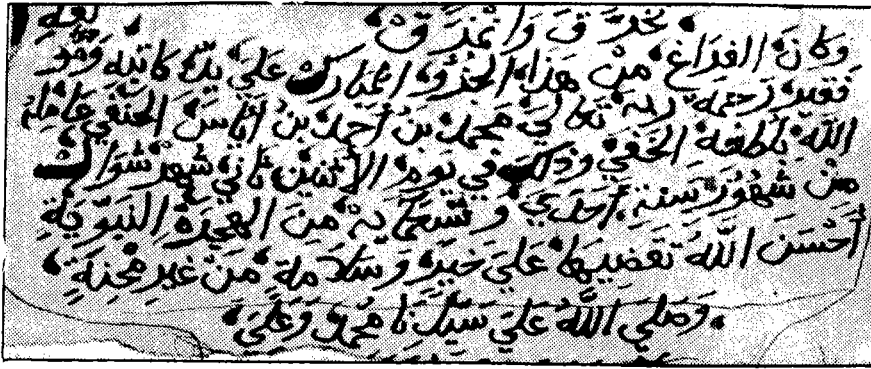 تخرق وانمزق
وكان الفراغ من هذا الجزؤ المبارك علي يد كاتبه
فقير رحمة ربه تعالي محمد بن أحمد بن أناس الحنفي عامله
الله بلطفه الخفي وذلك في يوم الاثنين ثاني شهر شوال
من شهور سنة أحدي وتسعماية من الهجرة النبوية
أحسن الله تقضيها علي خير وسلامة من غير محنة
وصلي الله علي سيدنا محمد وعلي